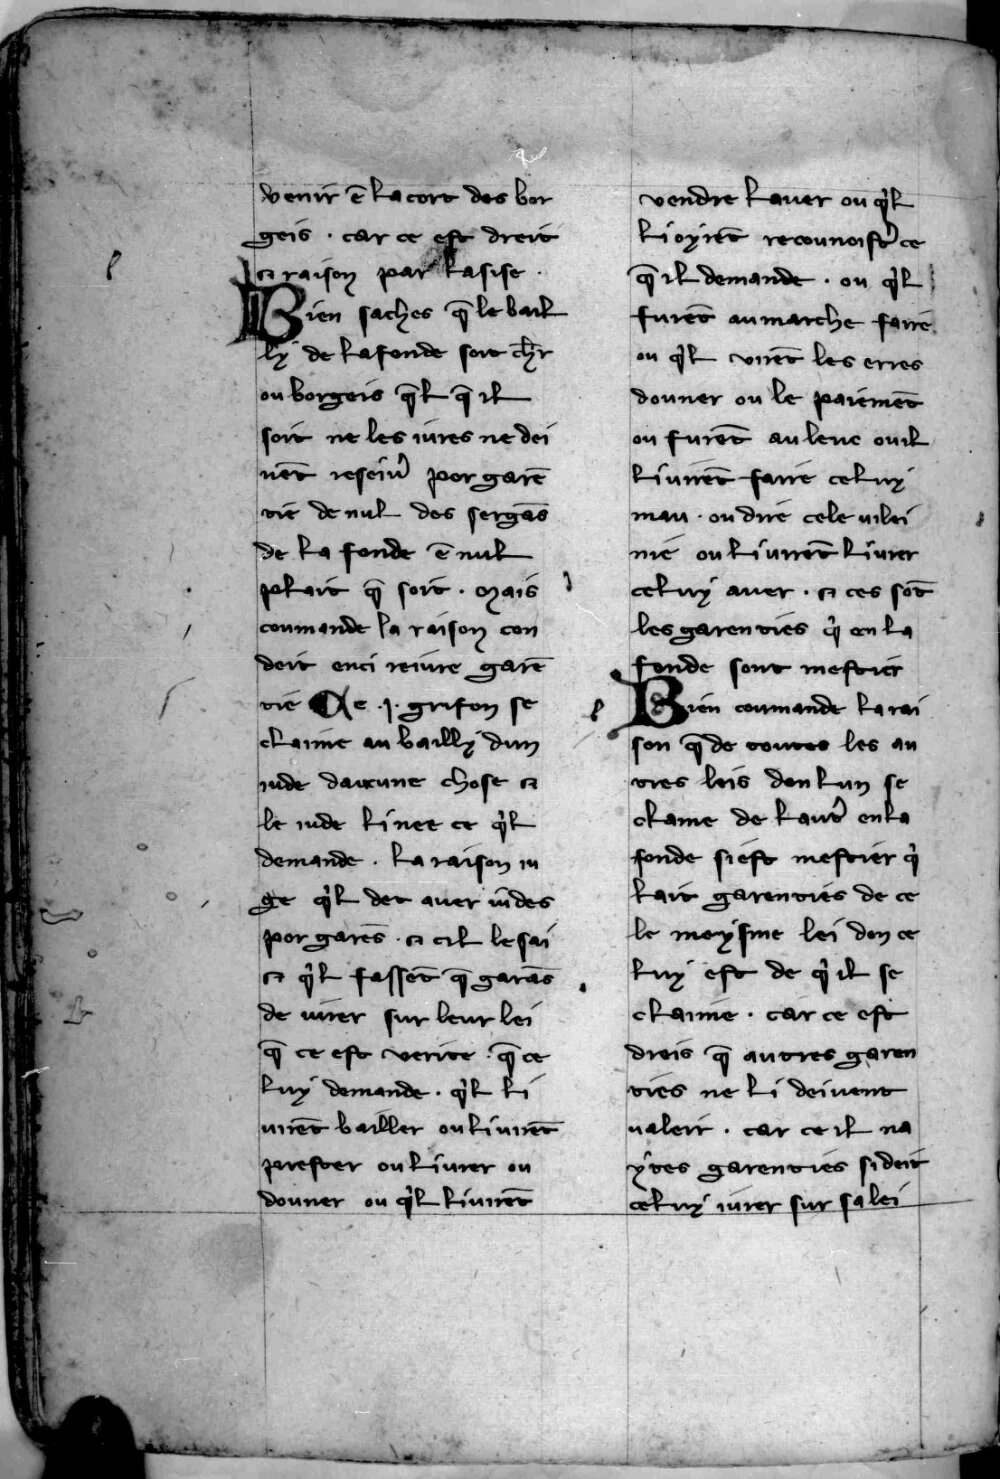 venir ē la cort des bor
geis · car ce est dreit
⁊ raison par lasise ·
Bien saches q̄ le bail
ly de la fonde soit ch̄r
ou borgeis q̄l q̄ il
soit ne les iures ne dei
uēt reseiu͛ por garē
tie de nul des sergās
de la fonde ē nul
plait q̄ soit · Mais
coumande la raison con
deit enci reiure garē
tie Qe · j · grifon se
claime au bailly dun
iude daucune chose ⁊
le iude li nee ce qͥl
demande · la raison iu
ge qͥl det auer iudes
por garēs · ⁊ cil le sai
⁊ qͥl fassēt q̄ garās
de iurer sur leur lei
q̄ ce est verite · q̄ ce
luy demande · qͥl li
virēt bailler ou li virēt
prester ou liurer ou
douner ou qͥl li virēt
vendre lauer ou qͥl
li oyrēt recounoistr͛ ce
q̄ il demande · ou qͥl
furēt au marche faire
ou qͥl virēt les erres
douner ou le paiemēt
ou furēt au leuc ou il
li virēt faire celuy
mau · ou dire cele vilei
nie ou li virrēt liurer
celuy auer · ⁊ ces sōt
les garenties qͥ en la
fonde sont mestier
Bien coumande la rai
son q̄ de toutes les au
tres leis don lun se
clame de lautr͛ en la
fonde si est mestier qͥ
lait garenties de ce
le meysme lei don ce
luy est de qͥ il se
claime · car ce est
dreis q̄ autres garen
ties ne li deiuent
valeir · car ce il na
ytes garenties si deit
celuy iurer sur sa lei